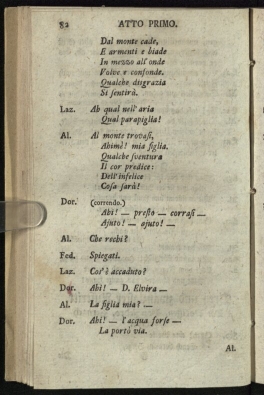 82 ATTO PRIMO.
Dal monte cade,
E armenti e biade
In mezzo all' onde
Volve e confonde.
Qualche disgrazia
Si sentirà.
Laz. Ah qual nell' aria
Qual parapiglia!
Al. Al monte trovasi,
Ahimè! mia figlia.
Qualche sventura
Il cor predice:
Dell' infelice
Cosa sarà!
Dor. (correndo.)
Ahi! — presto — corrasi —
Ajuto! — ajuto! —
Al. Che rechi?
Fed. Spiegati.
Laz. Cos' è accaduto?
Dor. Ahi! — D. Elvira —
Al. La figlia mia? —
Dor. Ahi! — l'acqua forse —
La portò via.
Al.